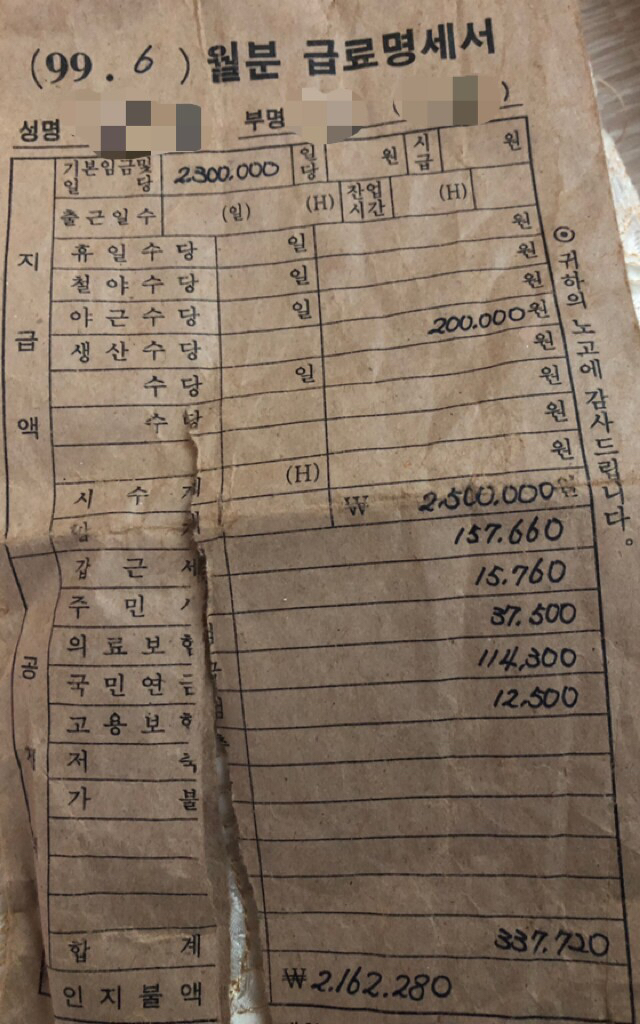 (99. 6) 월분 급료명세서
성명 부명 ( )
기본임금및일당 2.300.000 일당 원 시급 원
출근일수 (일) (H) 잔업시간 (H)
휴일수당 일 원
철야수당 일 원
야근수당 일 원
생산수당 200.000원
수당 일 원
수당 원
원
시수 (H) 원
₩ 2.500.000원
갑근세 157.660
주민 15.760
의료보험 37.500
국민연금 114,300
고용보험 12.500
저축
가불
합계 337.720
인지불액 ₩2.162.280
지급액
공
◎ 귀하의 노고에 감사드립니다.